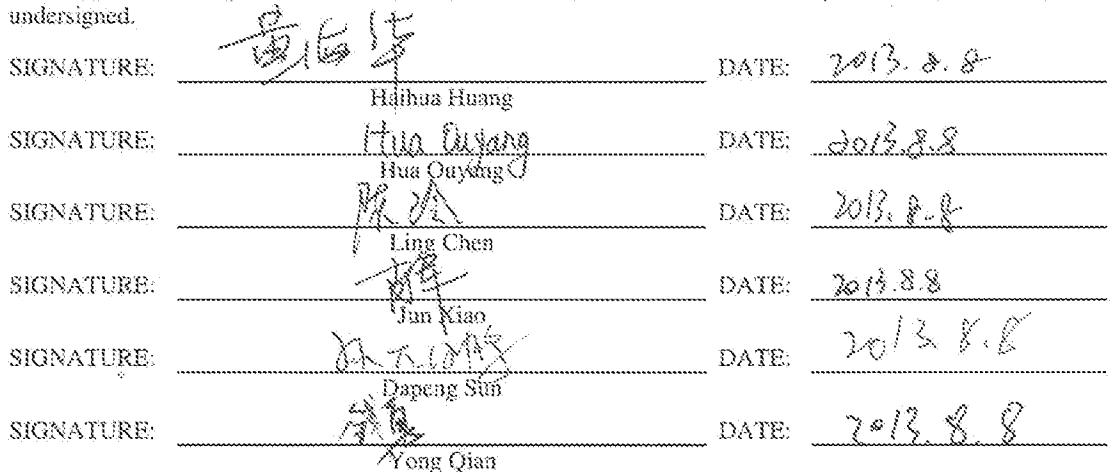 undersigned.
SIGNATURE: 黄海华 DATE: 2013.8.8
Haihua Huang
SIGNATURE: Hua Ouyang DATE: 2013.8.8
Hua Ouyang
SIGNATURE: 陈玲 DATE: 2013.8.8
Ling Chen
SIGNATURE: DATE: 2013.8.8
Jun Xiao
SIGNATURE: DATE: 2013.8.8
Dapeng Sun
SIGNATURE: DATE: 2013.8.8
Yong Qian